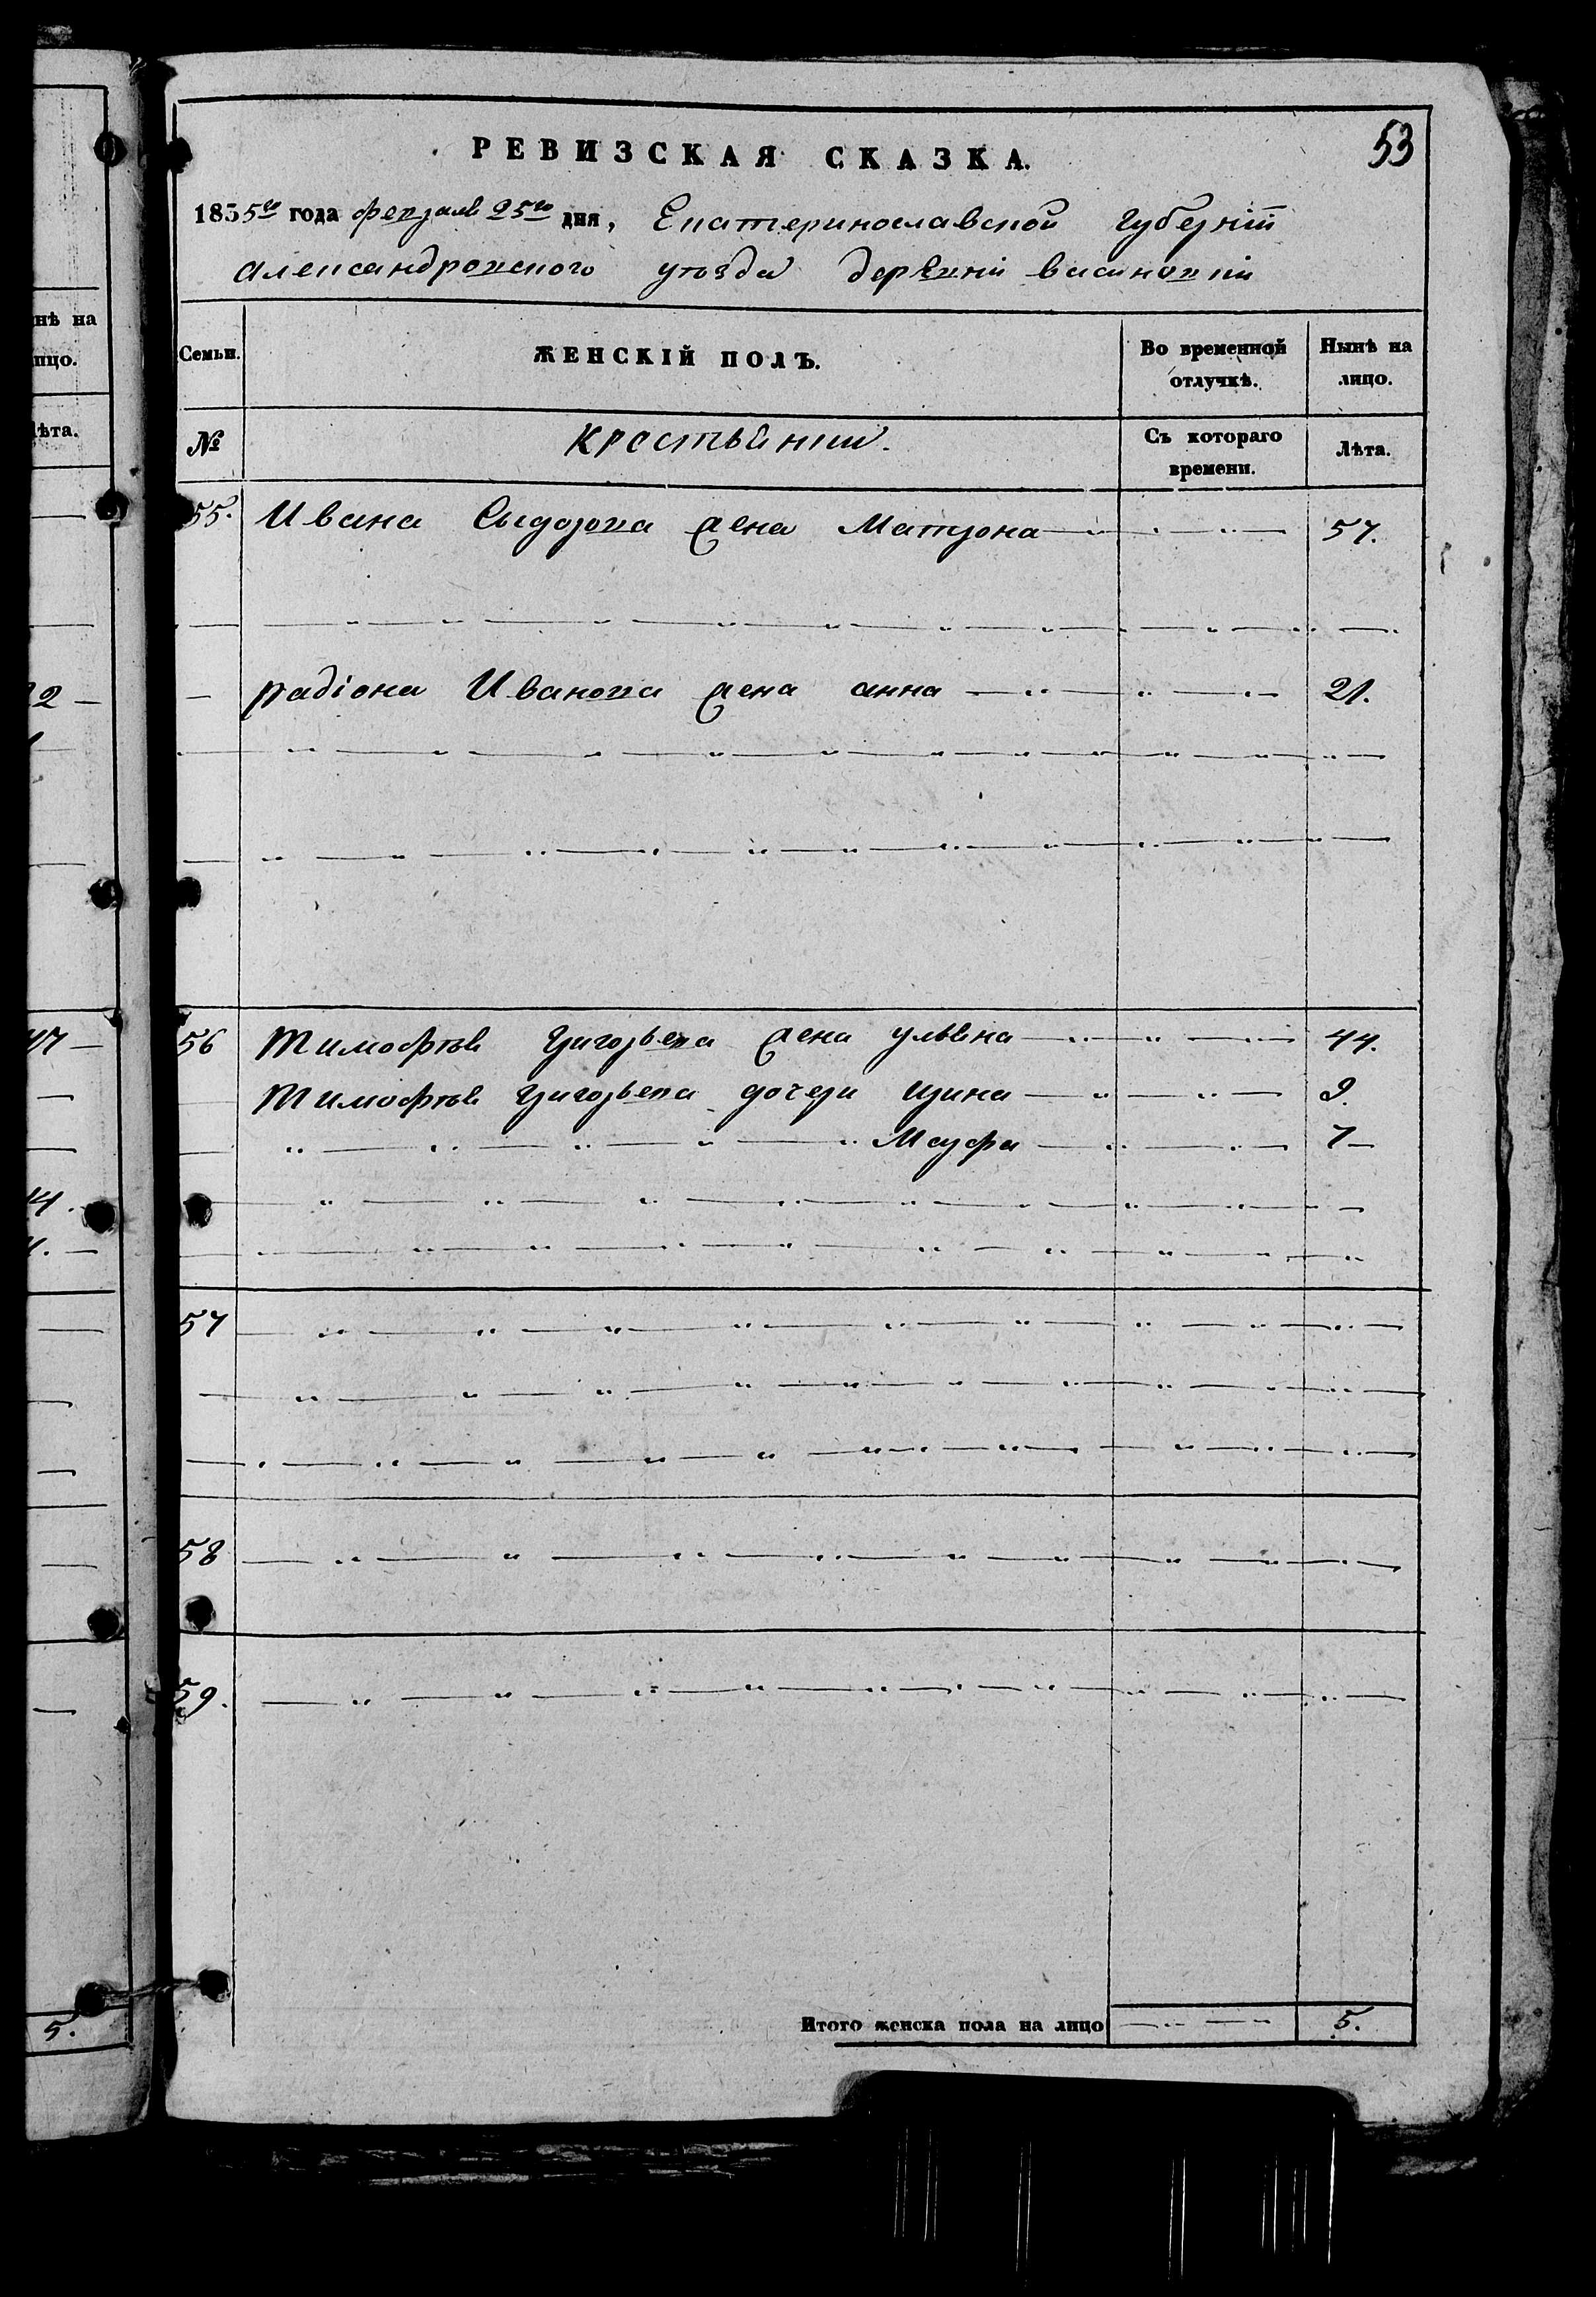 53
РЕВИЗСКАЯ СКАЗКА.
1835го года февраля 25го дня, Екатеринославской губерніи
александровского уѣзда деревни васиновки
Семьи.
ЖЕНСКІЙ ПОЛЪ.
Во временной отлучкѣ.
Нынѣ на лицо.
№
Крестьянии.
Съ котораго времени.
Лѣта.
55. Ивана Сидорова жена Матрона 57.
радіона Иванова жена анна 21.
56 Тимофѣя Григорьева жена ульяна 44.
Тимофѣя Григорьева дочери Ирина 9.
Мауфа 7
57
58
59.
Итого женска пола на лицо 5.
нѣ на
лицо.
лѣта.
22
47
14.
5.